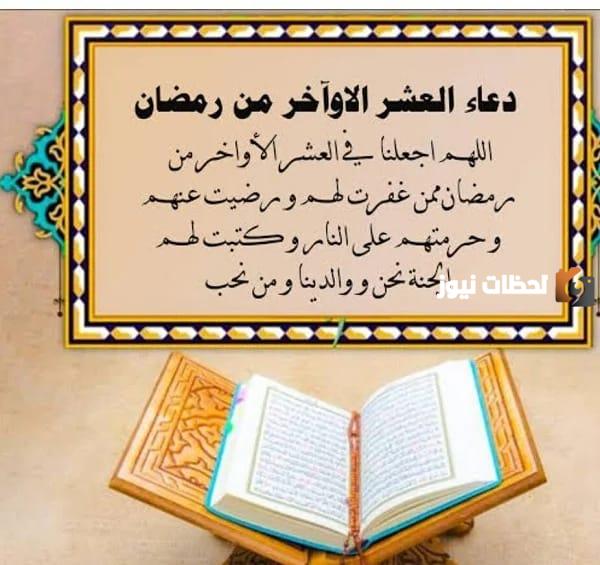 دعاء العشر الاوآخر من رمضان
اللهم اجعلنا في العشر الأواخر من
رمضان ممن غفرت لهم ورضيت عنهم
وحرمتهم على النار وكتبت لهم
الجنة نحن ووالدينا ومن نحب
لحظات نيوز